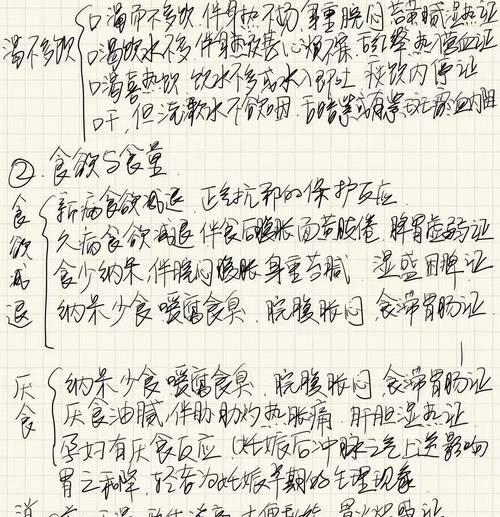 渴不多饮
口渴而不多饮,伴身热不扬,身重脘闷,苔黄腻 湿热证
口渴饮水不多,伴身热夜甚,心烦不寐,舌红绛 热入营血证
口渴喜热饮,饮水不多或水入即吐 痰饮内停证
口干,但漱水不欲咽,舌暗紫或有紫斑 瘀血内阻
② 食欲与食量
食欲减退
新病食欲减退 正气抗邪的保护反应
久病食欲减退 伴食后腹胀 面苍肢倦 脾胃虚弱证
食少纳呆,伴脘闷腹胀 身重苔腻 湿盛困脾证
纳呆少食 嗳腐食臭,脘腹胀闷,食滞胃肠证
厌食
纳呆少食 嗳腐食臭,脘腹胀闷,食滞胃肠证
厌食油腻,伴胁肋灼热胀痛,肝胆湿热证
孕妇有厌食反应(妊娠后冲脉之气上逆影响
胃之和降,轻者为妊娠早期的生理现象